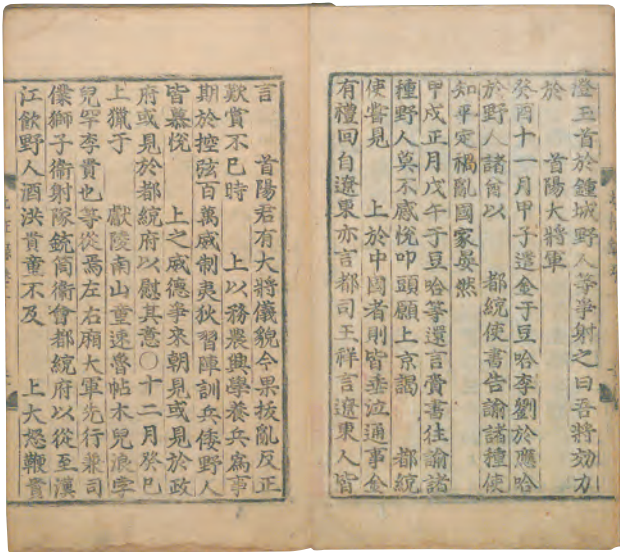 澄玉首於鍾城野人等爭射之曰吾將効力
於 首陽大將軍
癸酉十一月甲子遣金于豆哈李劉於應哈
於野人諸酋以 都統使書告諭諸種使
知平定禍亂國家晏然
甲戌正月戊午于豆哈等還言賫書往諭諸
種野人莫不感悅叩頭願上京謁 都統
使嘗見 上於中國者則皆垂泣通事金
有禮回自遼東亦言都司王祥言遼東人皆
言 首陽君有大將儀貌今果拔亂反正
歎賞不已時 上以務農興學養兵爲事
期於控弦百萬威制夷狄習陣訓兵倭野人
皆慕悅 上之威德爭來朝見或見於政
府或見於都統府以慰其意〇十二月癸巳
上獵于 獻陵南山童速魯帖木兒浪孛
兒罕李貴也等從焉左右廂大軍先行兼司
僕獅子衛射隊銃筒衛會都統府以從至漢
江飮野人酒洪貴童不及 上大怒鞭貴